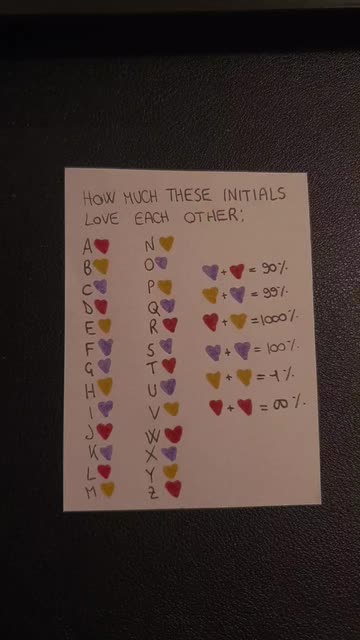 HOW MUCH THESE INITIALS
LOVE EACH OTHER:
A
B
C
D
E
F
G
H
I
J
K
L
M
N
O
P
Q
R
S
T
U
V
W
X
Y
Z
+ = 90%
+ = 99%
+ = 1000%
+ = 100%
+ = -1%
+ = ∞%